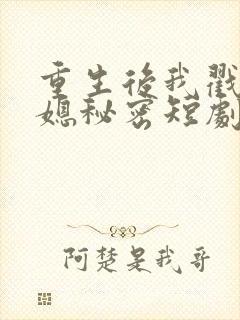 重生后我戳
媳秘密短剧
阿楚是我哥